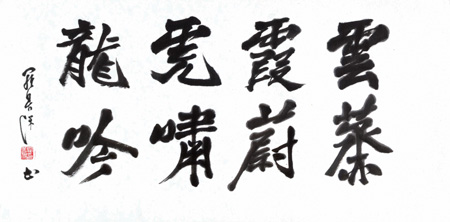 雲蒸
霞蔚
虎嘯
龍吟